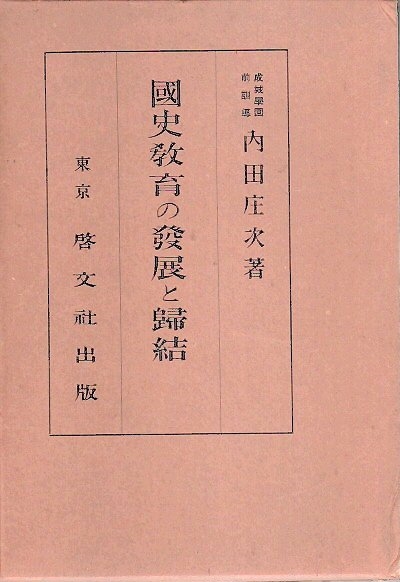 成城學園
前訓導
內田庄次著
國史敎育の發展と歸結
東京 啓文社出版